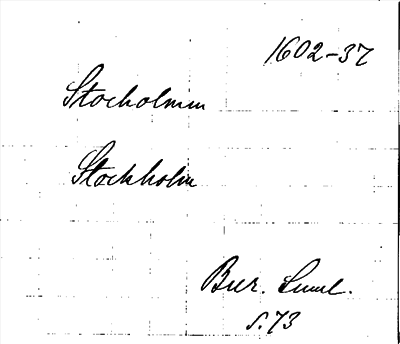 1602-37
Stocholmm
Stockholm
Bur. Suml.
s. 73